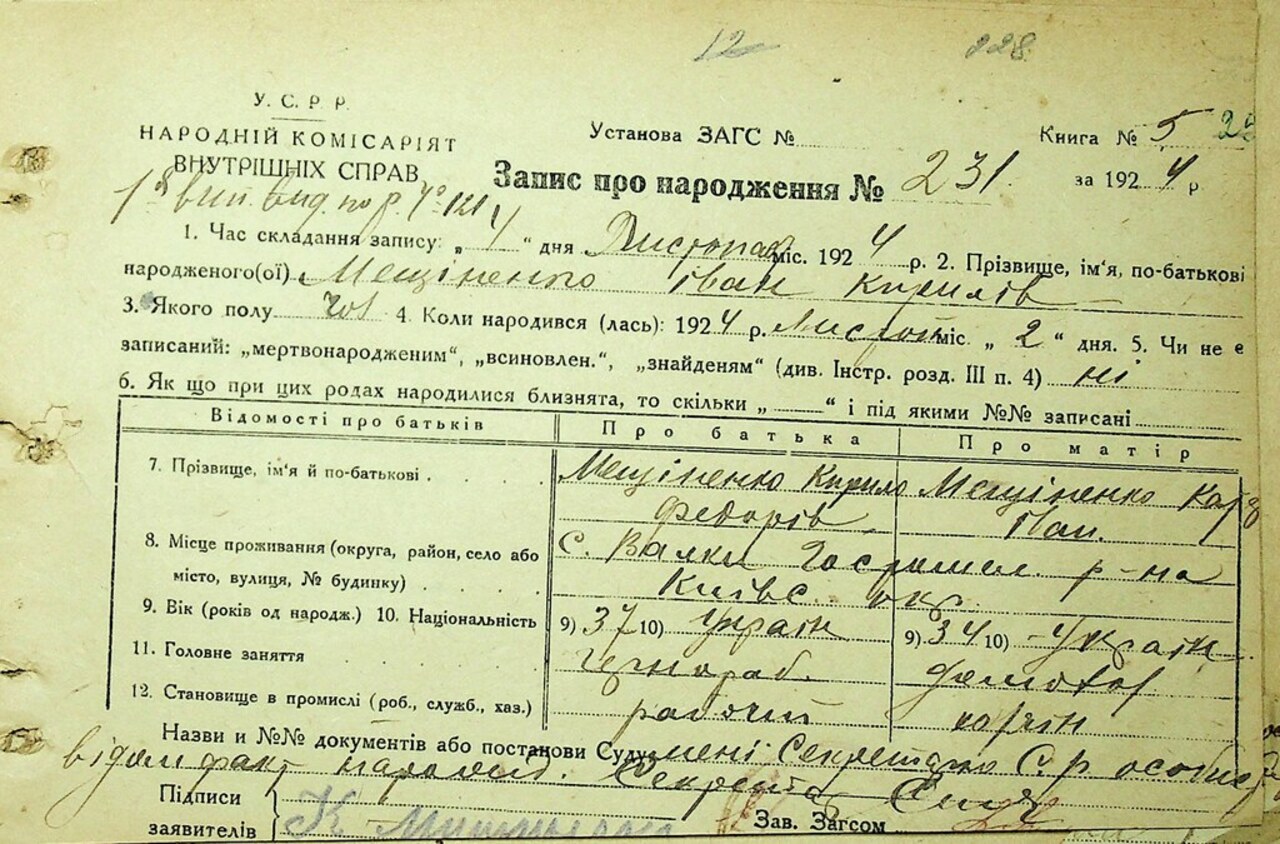 12 228
У. С. Р. Р.
НАРОДНІЙ КОМІСАРІЯТ
ВНУТРІШНІХ СПРАВ
Установа ЗАГС №
Книга № 5
Запис про народження № 231
за 1924 р
1. Час складання запису: „ 4 “ дня Листопад міс. 1924 р. 2. Прізвище, ім'я, по-батькові
народженого(ої) Мещіненко Іван Кирилів
3. Якого полу чол 4. Коли народився (лась): 1924 р. Листоп міс. „ 2 “ дня. 5. Чи не є
записаний: „мертвонародженим“, „всиновлен.“, „знайденям“ (див. Інстр. розд. III п. 4) ні
6. Як що при цих родах народилися близнята, то скільки „ “ і під якими №№ записані
Відомості про батьків Про батька Про матір
7. Прізвище, ім'я й по-батькові Мещіненко Кирило Мещіненко
Федорів Іван.
8. Місце проживання (округа, район, село або с. Валки Гостомел р-на
місто, вулиця, № будинку) Київс. окр.
9. Вік (років од народж.) 10. Національність 9) 37 10) Украін 9) 34 10) Украін
11. Головне заняття чернораб.
12. Становище в промислі (роб., служб., хаз.) рабочий
Назви и №№ документів або постанови Суду мені Секретарю С.р особис
відом факт народж. Секретар
Підписи
заявителів
Зав. Загсом